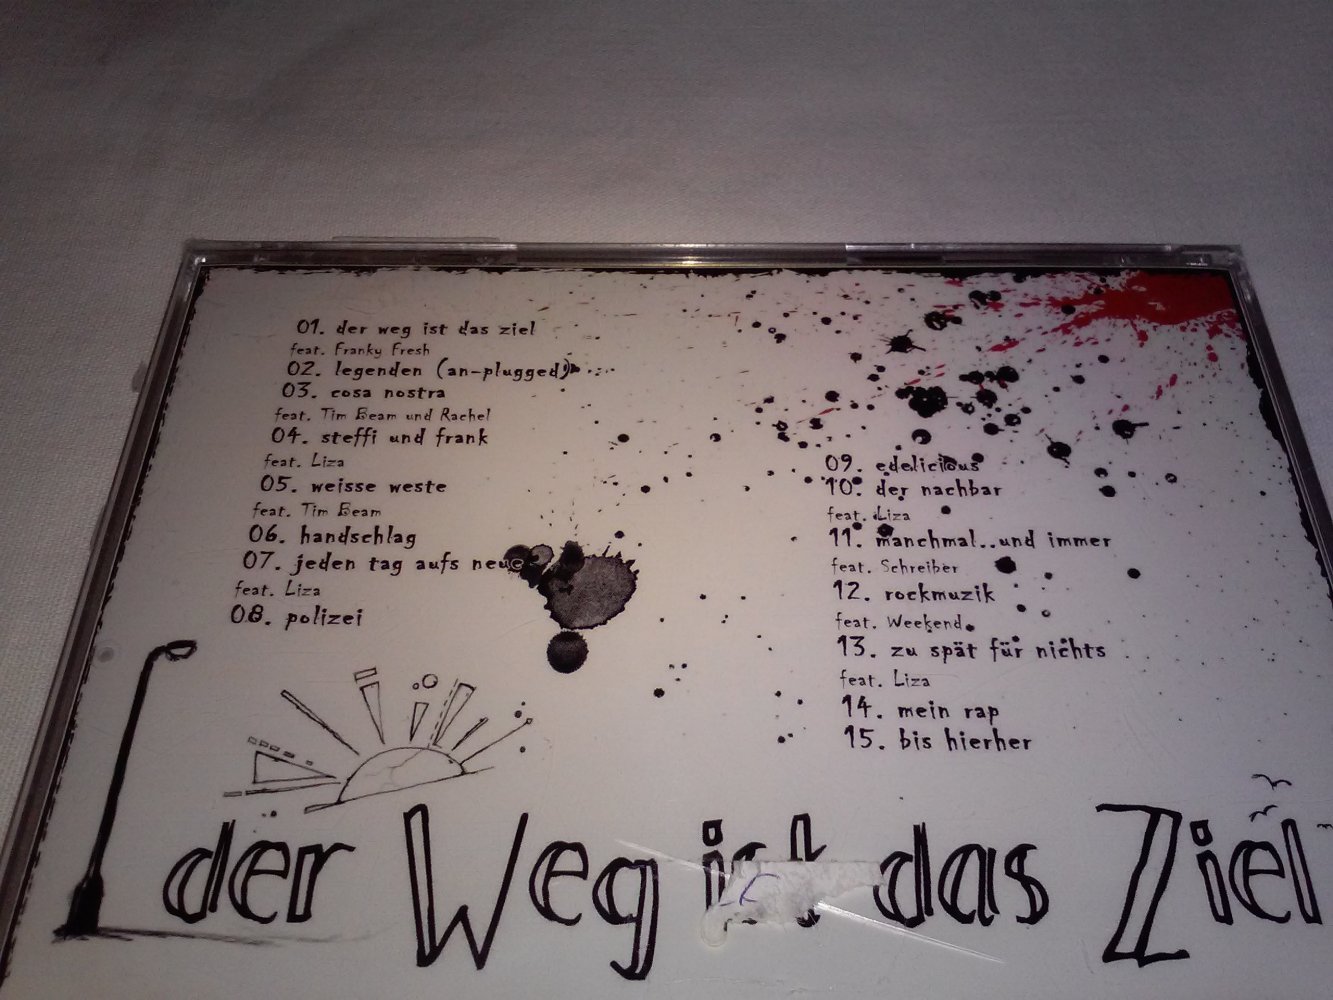 01. der weg ist das ziel
feat. Franky Fresh
02. legenden (an-plugged)
03. cosa nostra
feat. Tim Beam und Rachel
04. steffi und frank
feat. Liza
05. weisse weste
feat. Tim Beam
06. handschlag
07. jeden tag aufs neue
feat. Liza
08. polizei
09. edelicious
10. der nachbar
feat. Liza
11. manchmal..und immer
feat. Schreiber
12. rockmuzik
feat. Weekend
13. zu spät für nichts
feat. Liza
14. mein rap
15. bis hierher
der Weg ist das Ziel